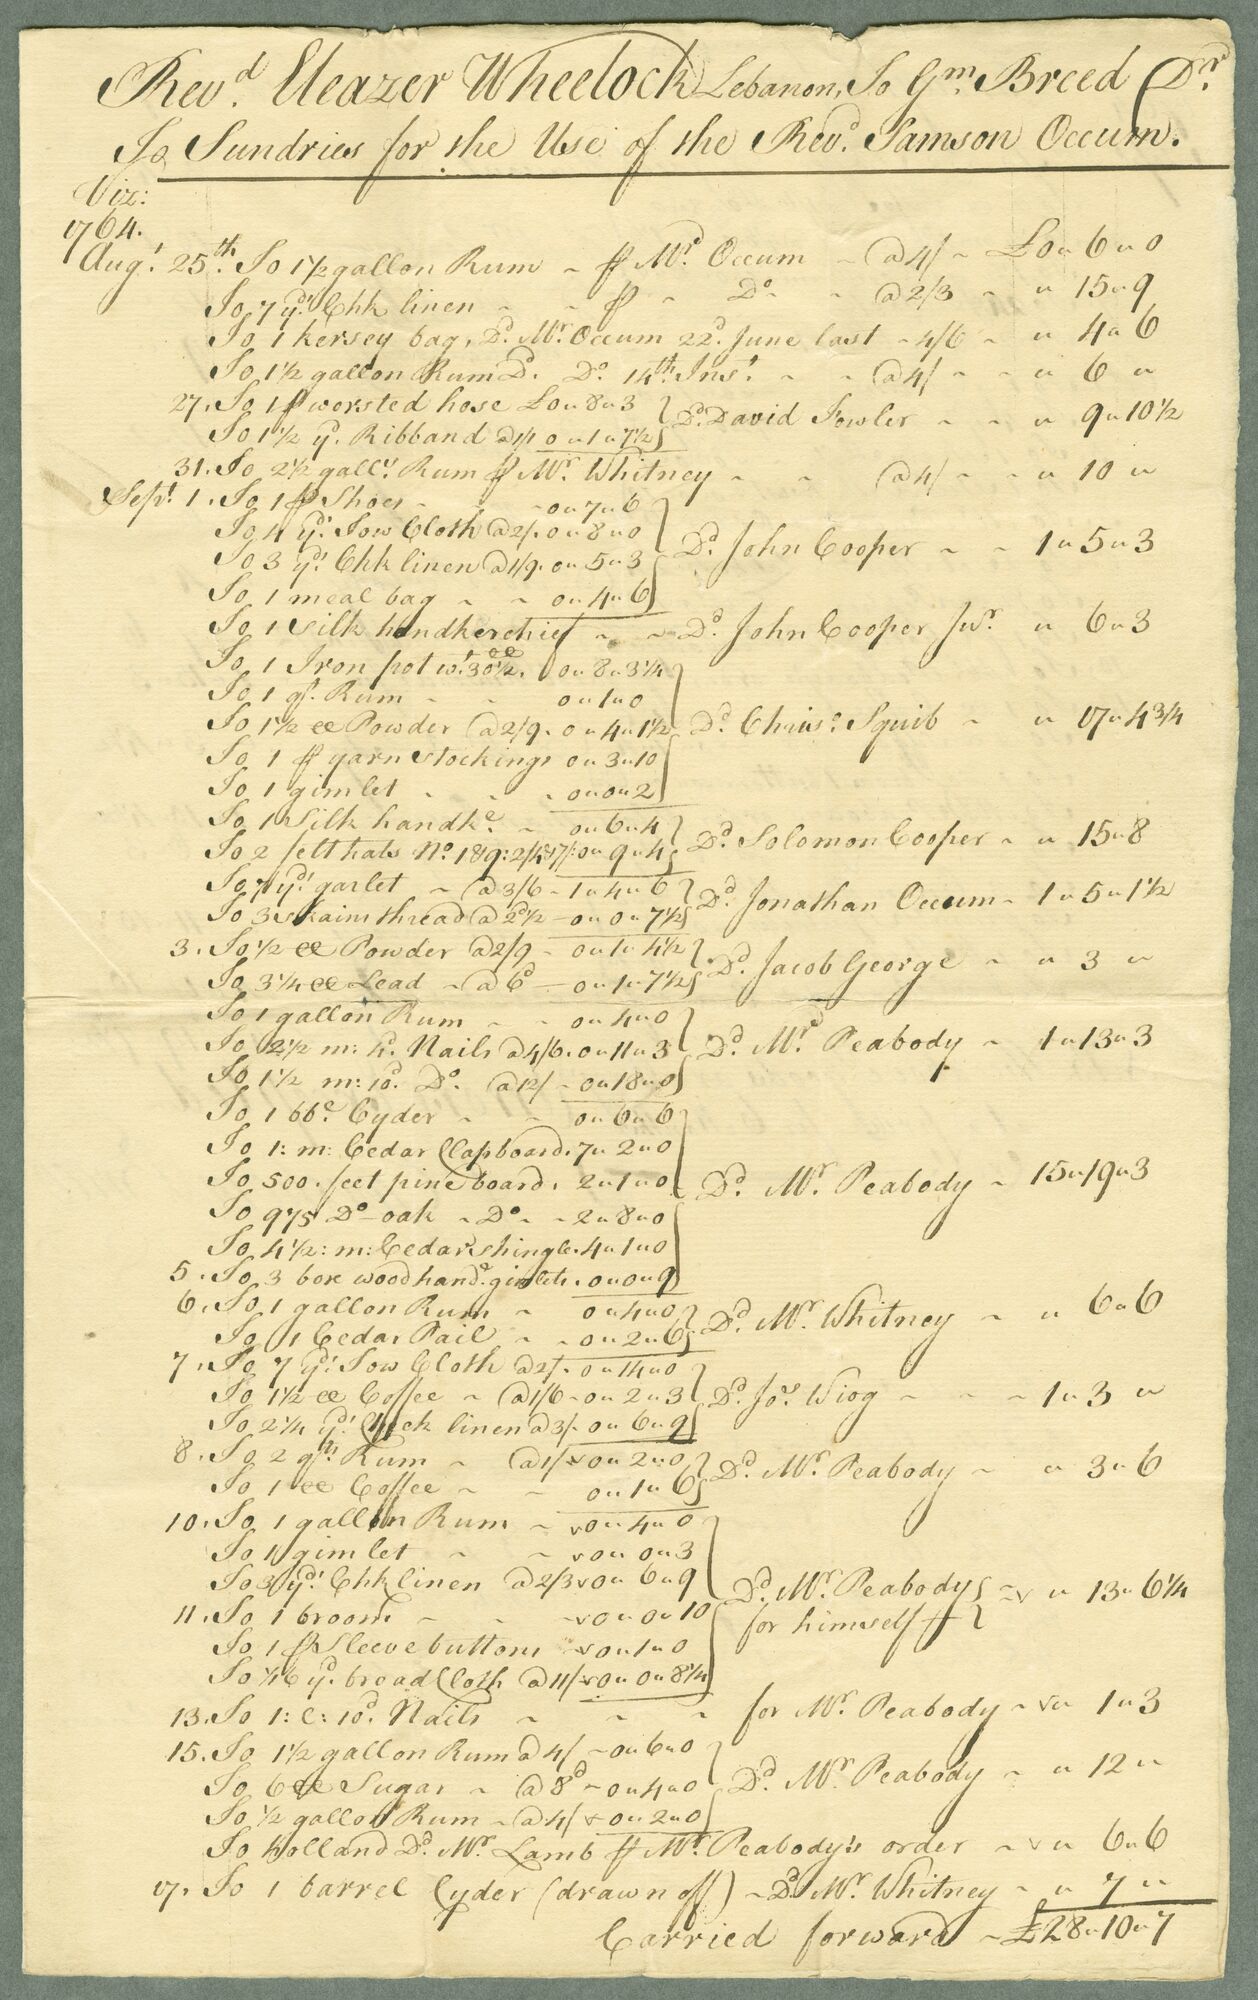 Revd. Eleazer Wheelock Lebanon, To Gm. Breed Dr
To Sundries for the Use of the Revd. Samson Occum.
Viz:
1764.
Augt. 25th. To 1½ gallon Rum - ⅌ Mr. Occum - @ 4/ - £0 〃 6 〃 0
To 7 yds. Chk linen - - ⅌ - Do - - @ 2/3 - 〃 15 〃 9
To 1 kersey bag, Dd. Mr. Occum 22d. June last - 4/6 - 〃 4 〃 6
To 1½ gallon Rum Dd. Do. 14th. Inst. - - @ 4/ - - 〃 6 〃
27. To 1 ⅌ worsted hose £0 〃 8 〃 3 } Dd. David Fowler - - 〃 9 〃 10½
To 1½ yd. Ribband @ 1/1 0 〃 1 〃 7½
31. To 2½ galls. Rum ⅌ Mr. Whitney - - @ 4/ - - 〃 10 〃
Sept. 1. To 1 ⅌ Shoes - - - 0 〃 7 〃 6
To 4 yds. Tow Cloth @ 2/. 0 〃 8 〃 0
To 3 yds. Chk linen @ 1/9. 0 〃 5 〃 3 } Dd. John Cooper - - 1 〃 5 〃 3
To 1 meal bag - - 0 〃 4 〃 6
To 1 silk handkerchief - - Dd. John Cooper Jur. 〃 6 〃 3
To 1 Iron pot wt. 30½ ℔. 0 〃 8 〃 3¼
To 1 qt. Rum - - 0 〃 1 〃 0
To 1½ ℔ Powder @ 2/9. 0 〃 4 〃 1½ } Dd. Chris. Squib - 〃 17 〃 4¾
To 1 ⅌ yarn stockings 0 〃 3 〃 10
To 1 gimlet - - - 0 〃 0 〃 2
To 1 Silk handke. - 0 〃 6 〃 4 } Dd. Solomon Cooper - 〃 15 〃 8
To 2 felt hats No. 189: 0 〃 9 〃 4
To 7 yds. garlet - @ 3/6 - 1 〃 4 〃 6 } Dd. Jonathan Occum - 1 〃 5 〃 1½
To 3 skains thread @ 2d½ - 0 〃 0 〃 7½
3. To ½ ℔ Powder @ 2/9 - 0 〃 1 〃 4½ } Dd. Jacob George - 〃 3 〃
To 3¼ ℔ Lead - @ 6d - 0 〃 1 〃 7½
To 1 gallon Rum - - 0 〃 4 〃 0
To 2½ m: 4d. Nails @ 4/6. 0 〃 11 〃 3 } Dd. Mr. Peabody - 1 〃 13 〃 3
To 1½ m: 10d. Do. @ 12/ - 0 〃 18 〃 0
To 1 bbe. Cyder - - 0 〃 6 〃 6
To 1: m: Cedar Clapboards. 7 〃 2 〃 0
To 500. feet pine boards. 2 〃 1 〃 0 } Dd. Mr. Peabody - 15 〃 19 〃 3
To 975 Do - oak - Do - - 2 〃 8 〃 0
To 4½: m: Cedar shingles. 4 〃 1 〃 0
5. To 3 box wood hande. gimlets. 0 〃 0 〃 9
6. To 1 gallon Rum - 0 〃 4 〃 0 } Dd. Mr. Whitney - 〃 6 〃 6
To 1 Cedar Pail - - 0 〃 2 〃 6
7. To 7 yds. Tow Cloth @ 2/. 0 〃 14 〃 0
To 1½ ℔ Coffee - @ 1/6 - 0 〃 2 〃 3 } Dd. Jos. Wiog - - - 1 〃 3 〃
To 2¼ yds. Check linen @ 3/- 0 〃 6 〃 9
8. To 2 qts. Rum - @ 1/ v 0 〃 2 〃 0 } Dd. Mr. Peabody - 〃 3 〃 6
To 1 ℔ Coffee - - 0 〃 1 〃 6
10. To 1 gallon Rum - v 0 〃 4 〃 0
To 1 gimlet - - v 0 〃 0 〃 3
To 3 yds. Chk linen @ 2/3 v 0 〃 6 〃 9 } Dd. Mr. Peabody } - v 〃 13 〃 6¼
11. To 1 broom - - - v 0 〃 0 〃 10 for himself
To 1 ⅌ Sleeve buttons v 0 〃 1 〃 0
To 1/16 yd. broad Cloth @ 11/ v 0 〃 0 〃 8¼
13. To 1: C: 10d. Nails - - - for Mr. Peabody - v 〃 1 〃 3
15. To 1½ gallon Rum @ 4/ - 0 〃 6 〃 0
To 6 ℔ Sugar - @ 8d - 0 〃 4 〃 0 } Dd. Mr. Peabody - 〃 12 〃
To ½ gallon Rum - @ 4/ v 0 〃 2 〃 0
To holland Dd. Mr. Lamb ⅌ Mr. Peabody's order - v 〃 6 〃 6
17. To 1 barrel Cyder (drawn off) - Dd. Mr. Whitney - 〃 7 〃
Carried forward - £28 〃 10 〃 7